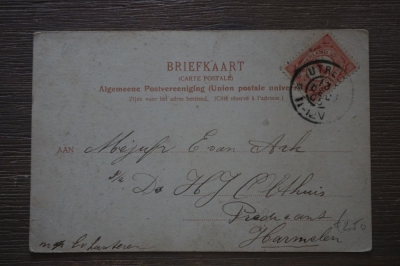 BRIEFKAART
(CARTE POSTALE)
Algemeene Postvereeniging (Union postale univer
Zijde voor het adres bestemd. (Côté réservé à l'adresse.)
UTRE
AAN Mejufr E van Ark
Ds H J Olthuis
Predikant
Harmelen